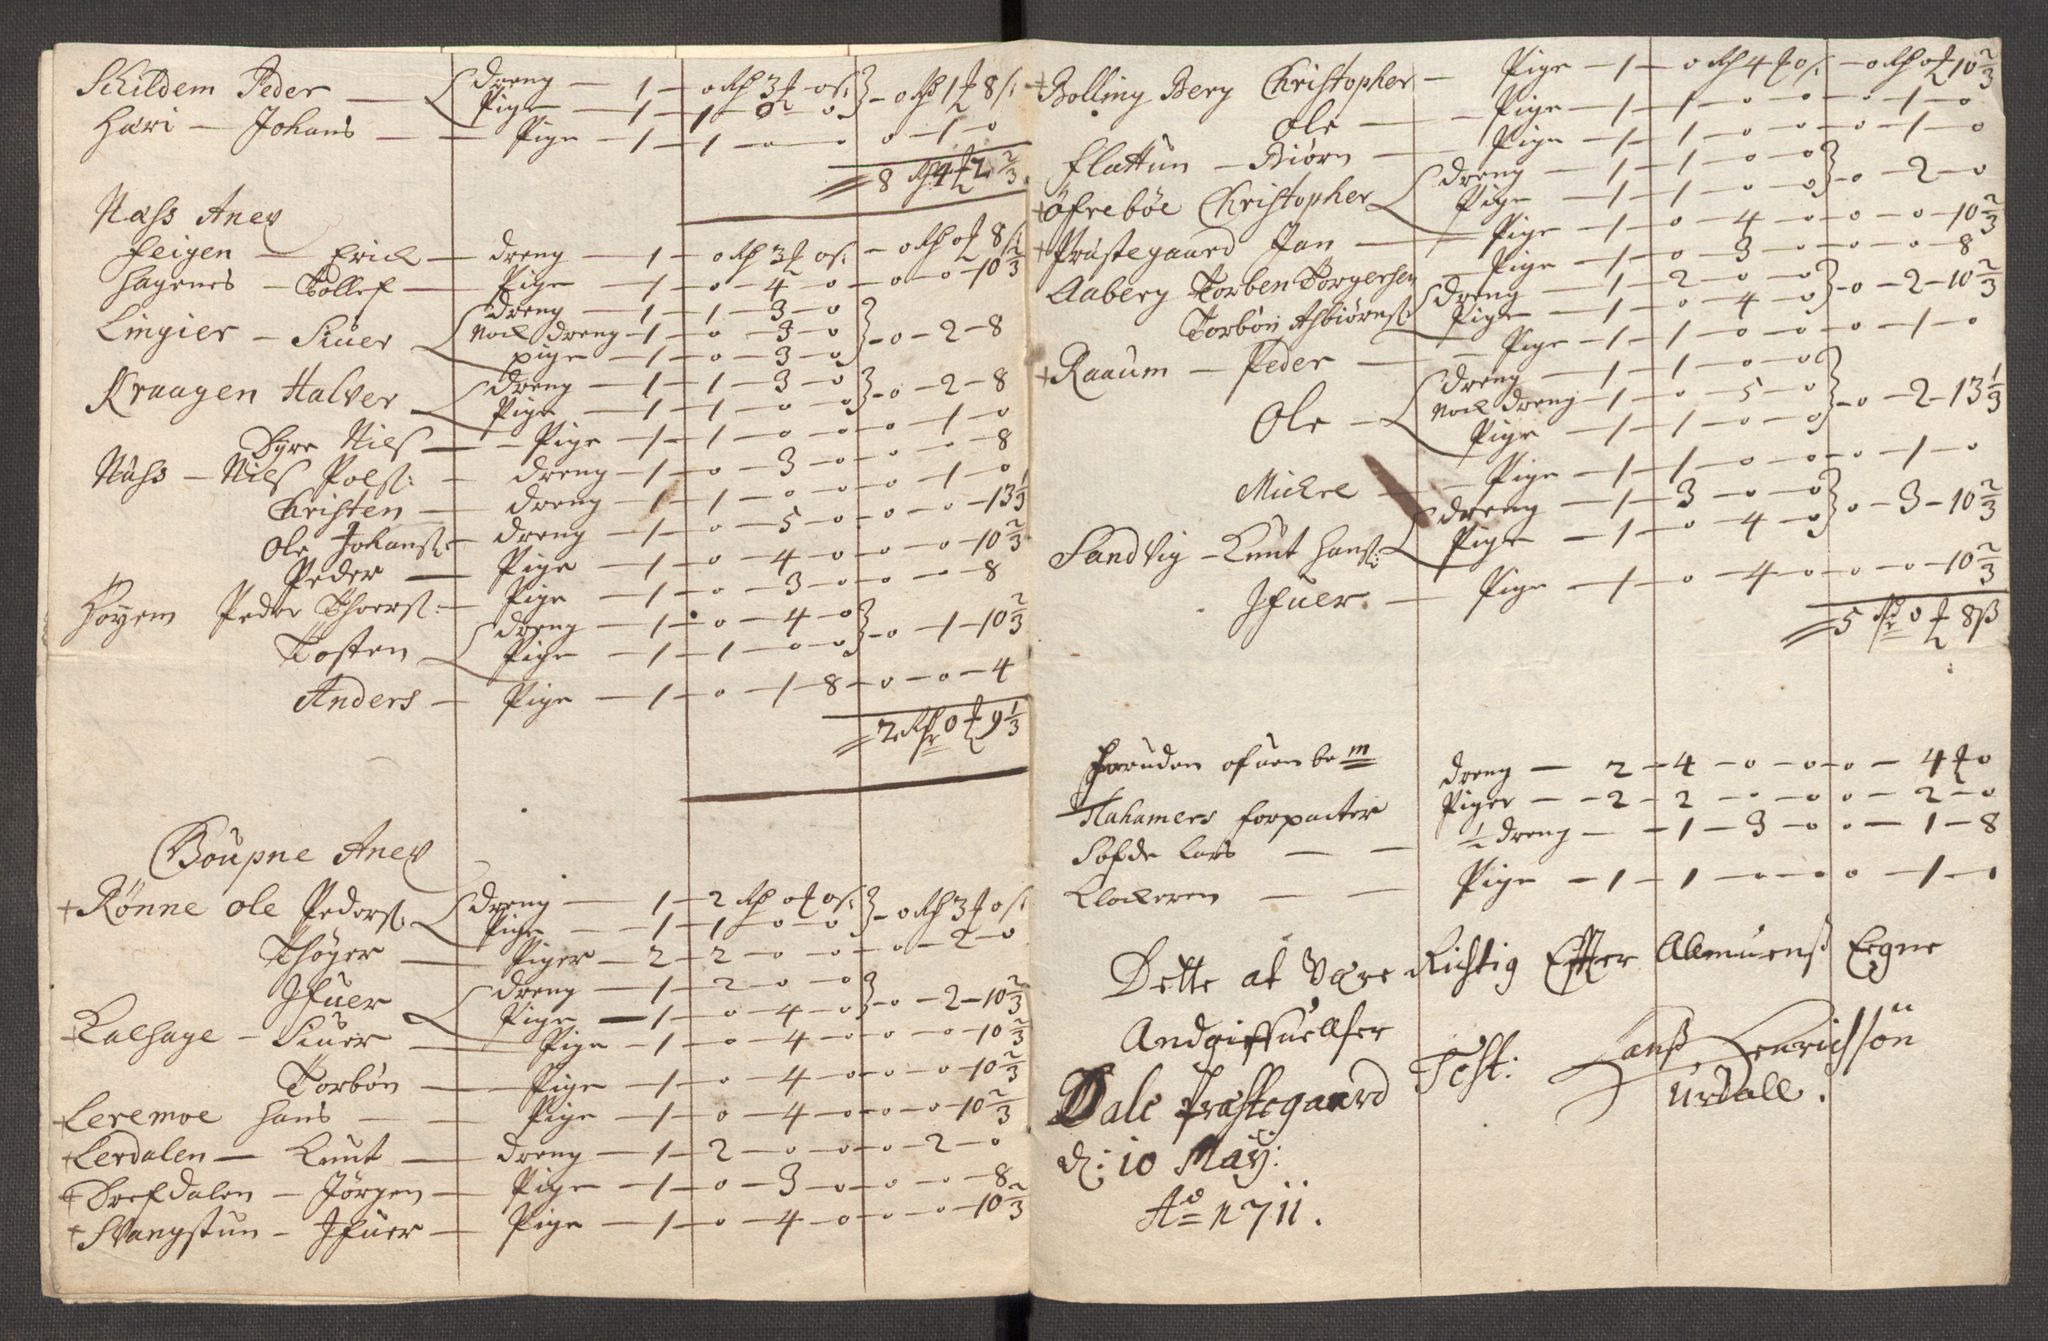 Skildem Peder — dreng — 1 — 0 Rd 3 ƶ 0 s: — 0 Rd 1 ƶ 8 s:
Pige — 1 — 1 — 0 — 0
Hæri — Johans — Pige — 1 — 1 — 0 — 0 — 0 — 1 — 0
8 Rd 4 ƶ 2 2/3
Næss Anex
Feigen — Erick — dreng — 1 — 0 Rd 3 ƶ 0 s: — 0 Rd 0 ƶ 8 s:
Hagenes — Tollef — Pige — 1 — 0 — 4 — 0 — 0 — 0 — 10 2/3
dreng — 1 — 1 — 3 — 0
Lingier — Siuer — Nock dreng — 1 — 0 — 3 — 0 — 0 — 2 — 8
pige — 1 — 0 — 3 — 0
Kraagen Halver — dreng — 1 — 1 — 3 — 0 — 0 — 2 — 8
Pige — 1 — 1 — 0 — 0
Byre Nils — Pige — 1 — 1 — 0 — 0 — 0 — 1 — 0
Næss — Nils Pols: — dreng — 1 — 0 — 3 — 0 — 0 — 0 — 8
Christen — dreng — 1 — 1 — 0 — 0 — 0 — 1 — 0
Ole Johans: — dreng — 1 — 0 — 5 — 0 — 0 — 0 — 13 1/3
Peder — Pige — 1 — 0 — 4 — 0 — 0 — 0 — 10 2/3
Høyem Peder Thoers: — Pige — 1 — 0 — 3 — 0 — 0 — 0 — 8
Tosten — dreng — 1 — 0 — 4 — 0 — 0 — 1 — 10 2/3
Pige — 1 — 1 — 0 — 0
Anders — Pige — 1 — 0 — 1 — 8 — 0 — 0 — 4
2 Rdr 0 ƶ 9 1/3
Goupne Anex
+ Rønne Ole Peders: — dreng — 1 — 2 Rd 0 ƶ 0 s: — 0 Rd 3 ƶ 0 s:
Pige — 1 — 1 — 0 — 0
Thøger — Piger — 2 — 2 — 0 — 0 — 0 — 2 — 0
Ifuer — dreng — 1 — 2 — 0 — 0 — 0 — 2 — 10 2/3
Pige — 1 — 0 — 4 — 0
Kalhage — Siuer — Pige — 1 — 0 — 4 — 0 — 0 — 0 — 10 2/3
Torbøn — Pige — 1 — 0 — 4 — 0 — 0 — 0 — 10 2/3
+ Leremoe Hans — Pige — 1 — 0 — 4 — 0 — 0 — 0 — 10 2/3
+ Lerdalen — Knut — dreng — 1 — 2 — 0 — 0 — 0 — 2 — 0
+ Drefdalen — Jørgen — Pige — 1 — 0 — 3 — 0 — 0 — 0 — 8
+ Svangstun — Ifuer — Pige — 1 — 0 — 4 — 0 — 0 — 0 — 10 2/3
+ Bolling Berg Christopher — Pige — 1 — 0 Rd 4 ƶ 0 s: — 0 Rd 0 ƶ 10 2/3
Ole — Pige — 1 — 1 — 0 — 0 — 0 — 1 — 0
Flattun — Biørn — Pige — 1 — 1 — 0 — 0 — 0 — 1 — 0
+ Øfrebøe Christopher — dreng — 1 — 1 — 0 — 0 — 0 — 2 — 0
Pige — 1 — 1 — 0 — 0
+ Præstegaard Jan — Pige — 1 — 0 — 4 — 0 — 0 — 0 — 10 2/3
Aaberg Torben Torgersen — Pige — 1 — 0 — 3 — 0 — 0 — 0 — 8
Torbøn Asbiørns: — dreng — 1 — 2 — 0 — 0 — 0 — 2 — 10 2/3
Pige — 1 — 0 — 4 — 0
+ Raaum — Peder — Pige — 1 — 1 — 0 — 0 — 0 — 1 — 0
dreng — 1 — 1 — 0 — 0
Ole — Nock dreng — 1 — 0 — 5 — 0 — 0 — 2 — 13 1/3
Pige — 1 — 1 — 0 — 0
Mickel — Pige — 1 — 1 — 0 — 0 — 0 — 1 — 0
Sandvig — Knut Hans: — dreng — 1 — 3 — 0 — 0 — 0 — 3 — 10 2/3
Pige — 1 — 0 — 4 — 0
Ifuer — Pige — 1 — 0 — 4 — 0 — 0 — 0 — 10 2/3
5 Rdr 0 ƶ 8 ß
Foruden ofuenbem — dreng — 2 — 4 — 0 — 0 — 0 — 4 ƶ 0
Hahamers forpacter — Piger — 2 — 2 — 0 — 0 — 2 — 0
Søfde Lars — 1/2 dreng — 1 — 3 — 0 — 0 — 1 — 8
Klockeren — Pige — 1 — 1 — 0 — 0 — 0 — 1
Dette at Være Richtig Effter Allmuenß Eegne
Andgiffuelser
Test: Hanß Henrichssøn
Urdall.
Dale Præstegaard
d: 10 Maÿ:
Ao 1711.